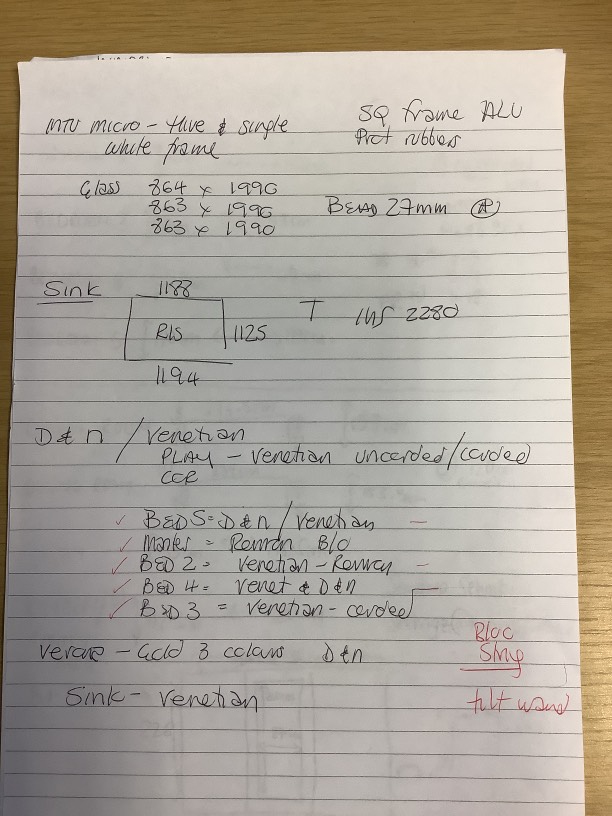 MTV micro - Hive & single
white frame
SQ frame ALU
Prot rubbers
Glass 864 x 1990
863 x 1990
863 x 1990
BEAD 27mm
Sink
1188
RIS
1125
1194
T INS 2280
D & n / Venetian
PLAY - Venetian uncorded/corded
CCR
✓ BED 5 = D & n / Venetian -
✓ = Roman B/O
✓ BED 2 = Venetian - Roman -
✓ BED 4 = Venet & D&n
✓ BED 3 = Venetian - corded
- Gold 3 colours D&n
Bloc
Sink - Venetian
tilt wand